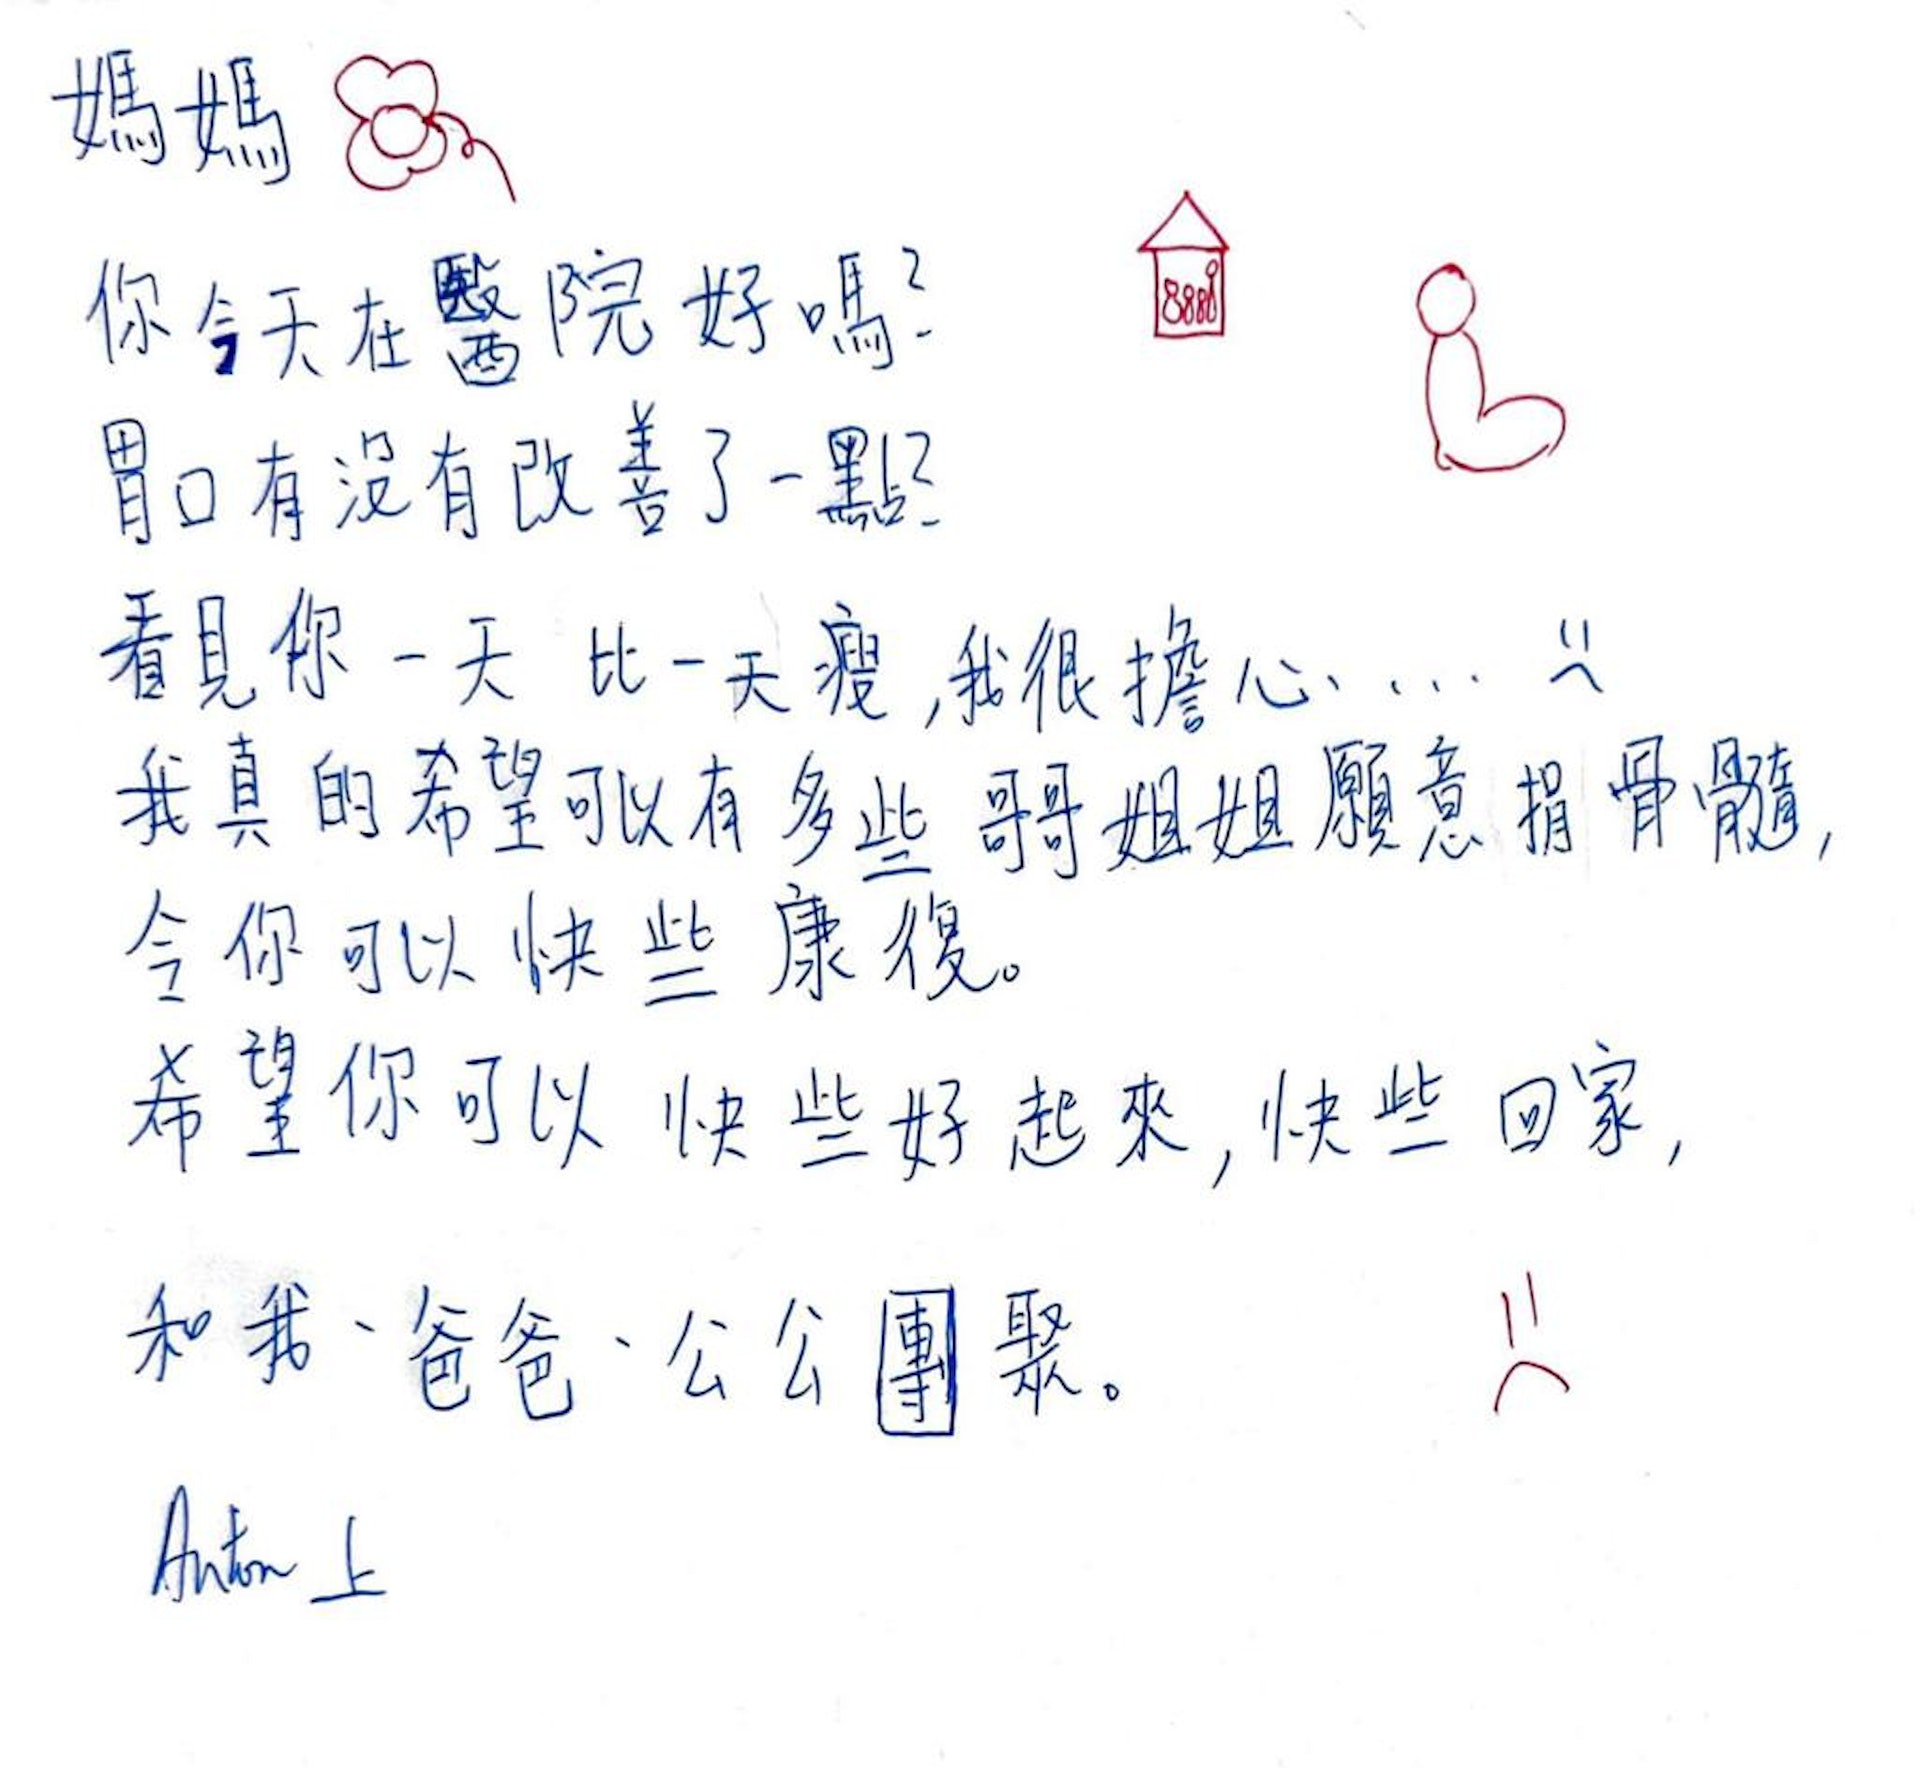 媽媽
你今天在醫院好嗎?
胃口有沒有改善了一點?
看見你一天比一天瘦,我很擔心.....
我真的希望可以有多些哥哥姐姐願意捐骨髓,
令你可以快些康復。
希望你可以快些好起來,快些回家,
和我、爸爸、公公團聚。
Anton 上